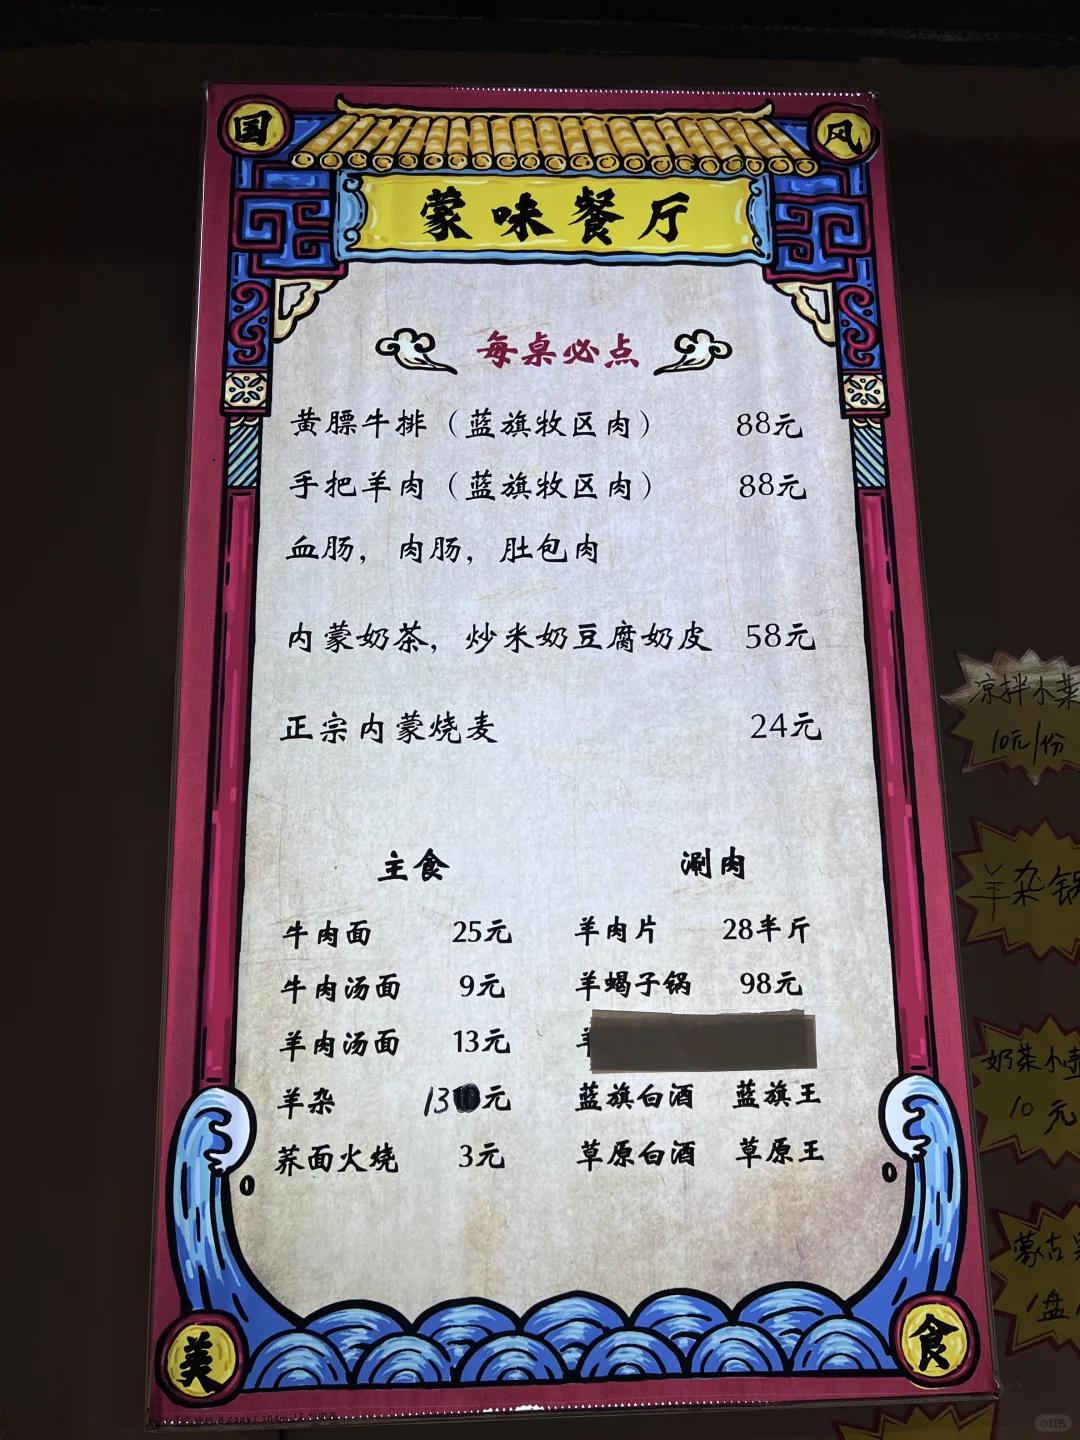 国
风
蒙味餐厅
每桌必点
黄膘牛排（蓝旗牧区肉） 88元
手把羊肉（蓝旗牧区肉） 88元
血肠，肉肠，肚包肉
内蒙奶茶，炒米奶豆腐奶皮 58元
正宗内蒙烧麦 24元
主食
牛肉面 25元
牛肉汤面 9元
羊肉汤面 13元
羊杂 13元
荞面火烧 3元
涮肉
羊肉片 28半斤
羊蝎子锅 98元
蓝旗白酒 蓝旗王
草原白酒 草原王
美
食
凉拌小菜
10元/份
羊杂锅
奶茶小壶
10元
蒙古
1盘
小红书